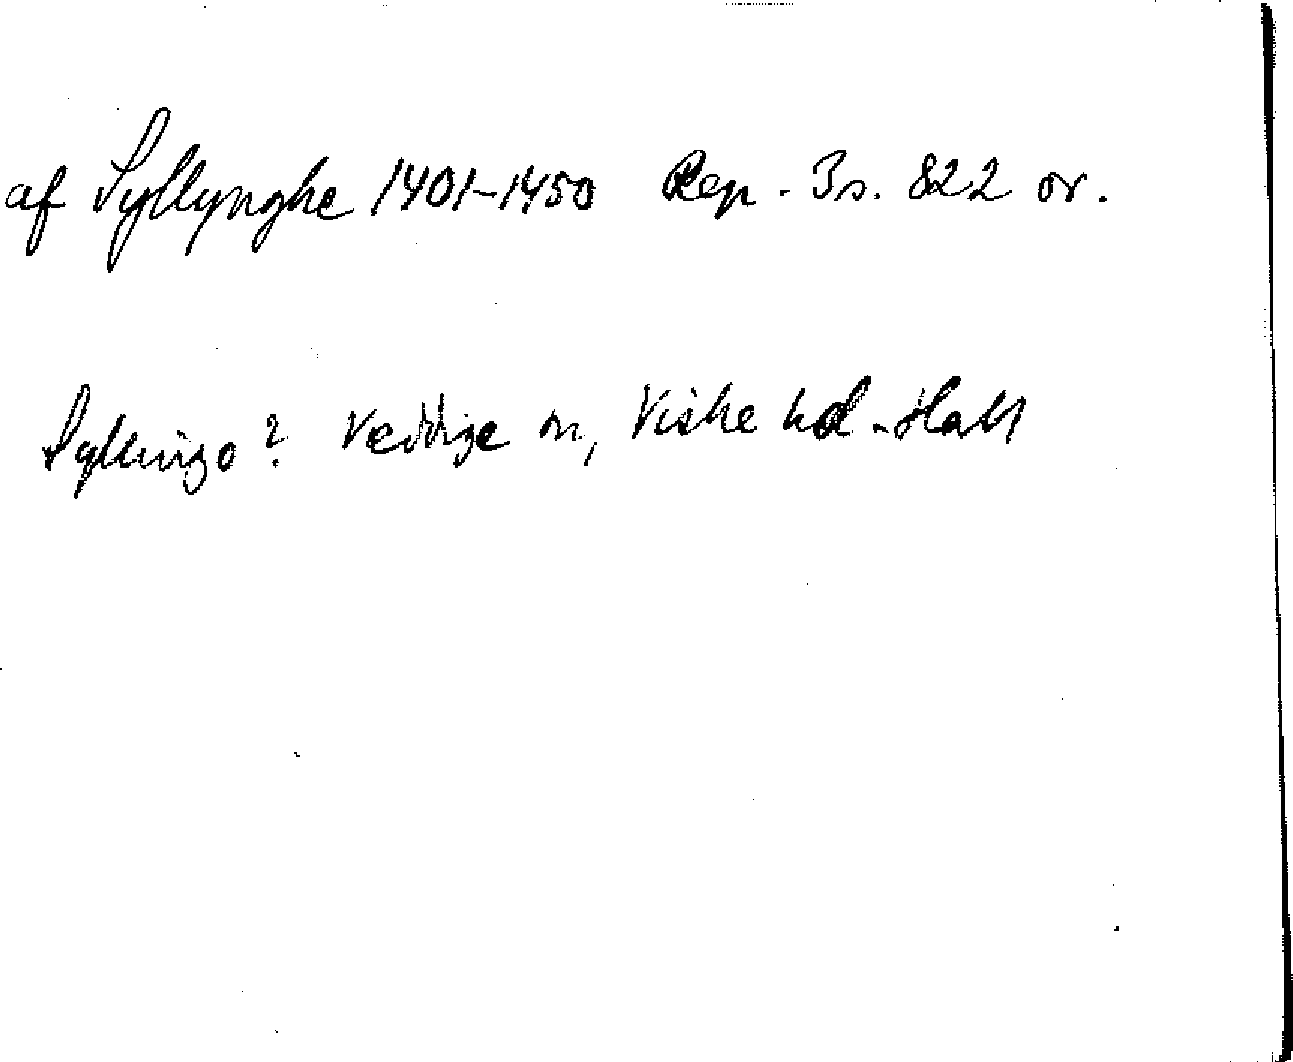 af Syllynghe 1401-1450 Rep. 3 s. 822 or.
Syllinge? Veddige sn, Viske hd. Hall